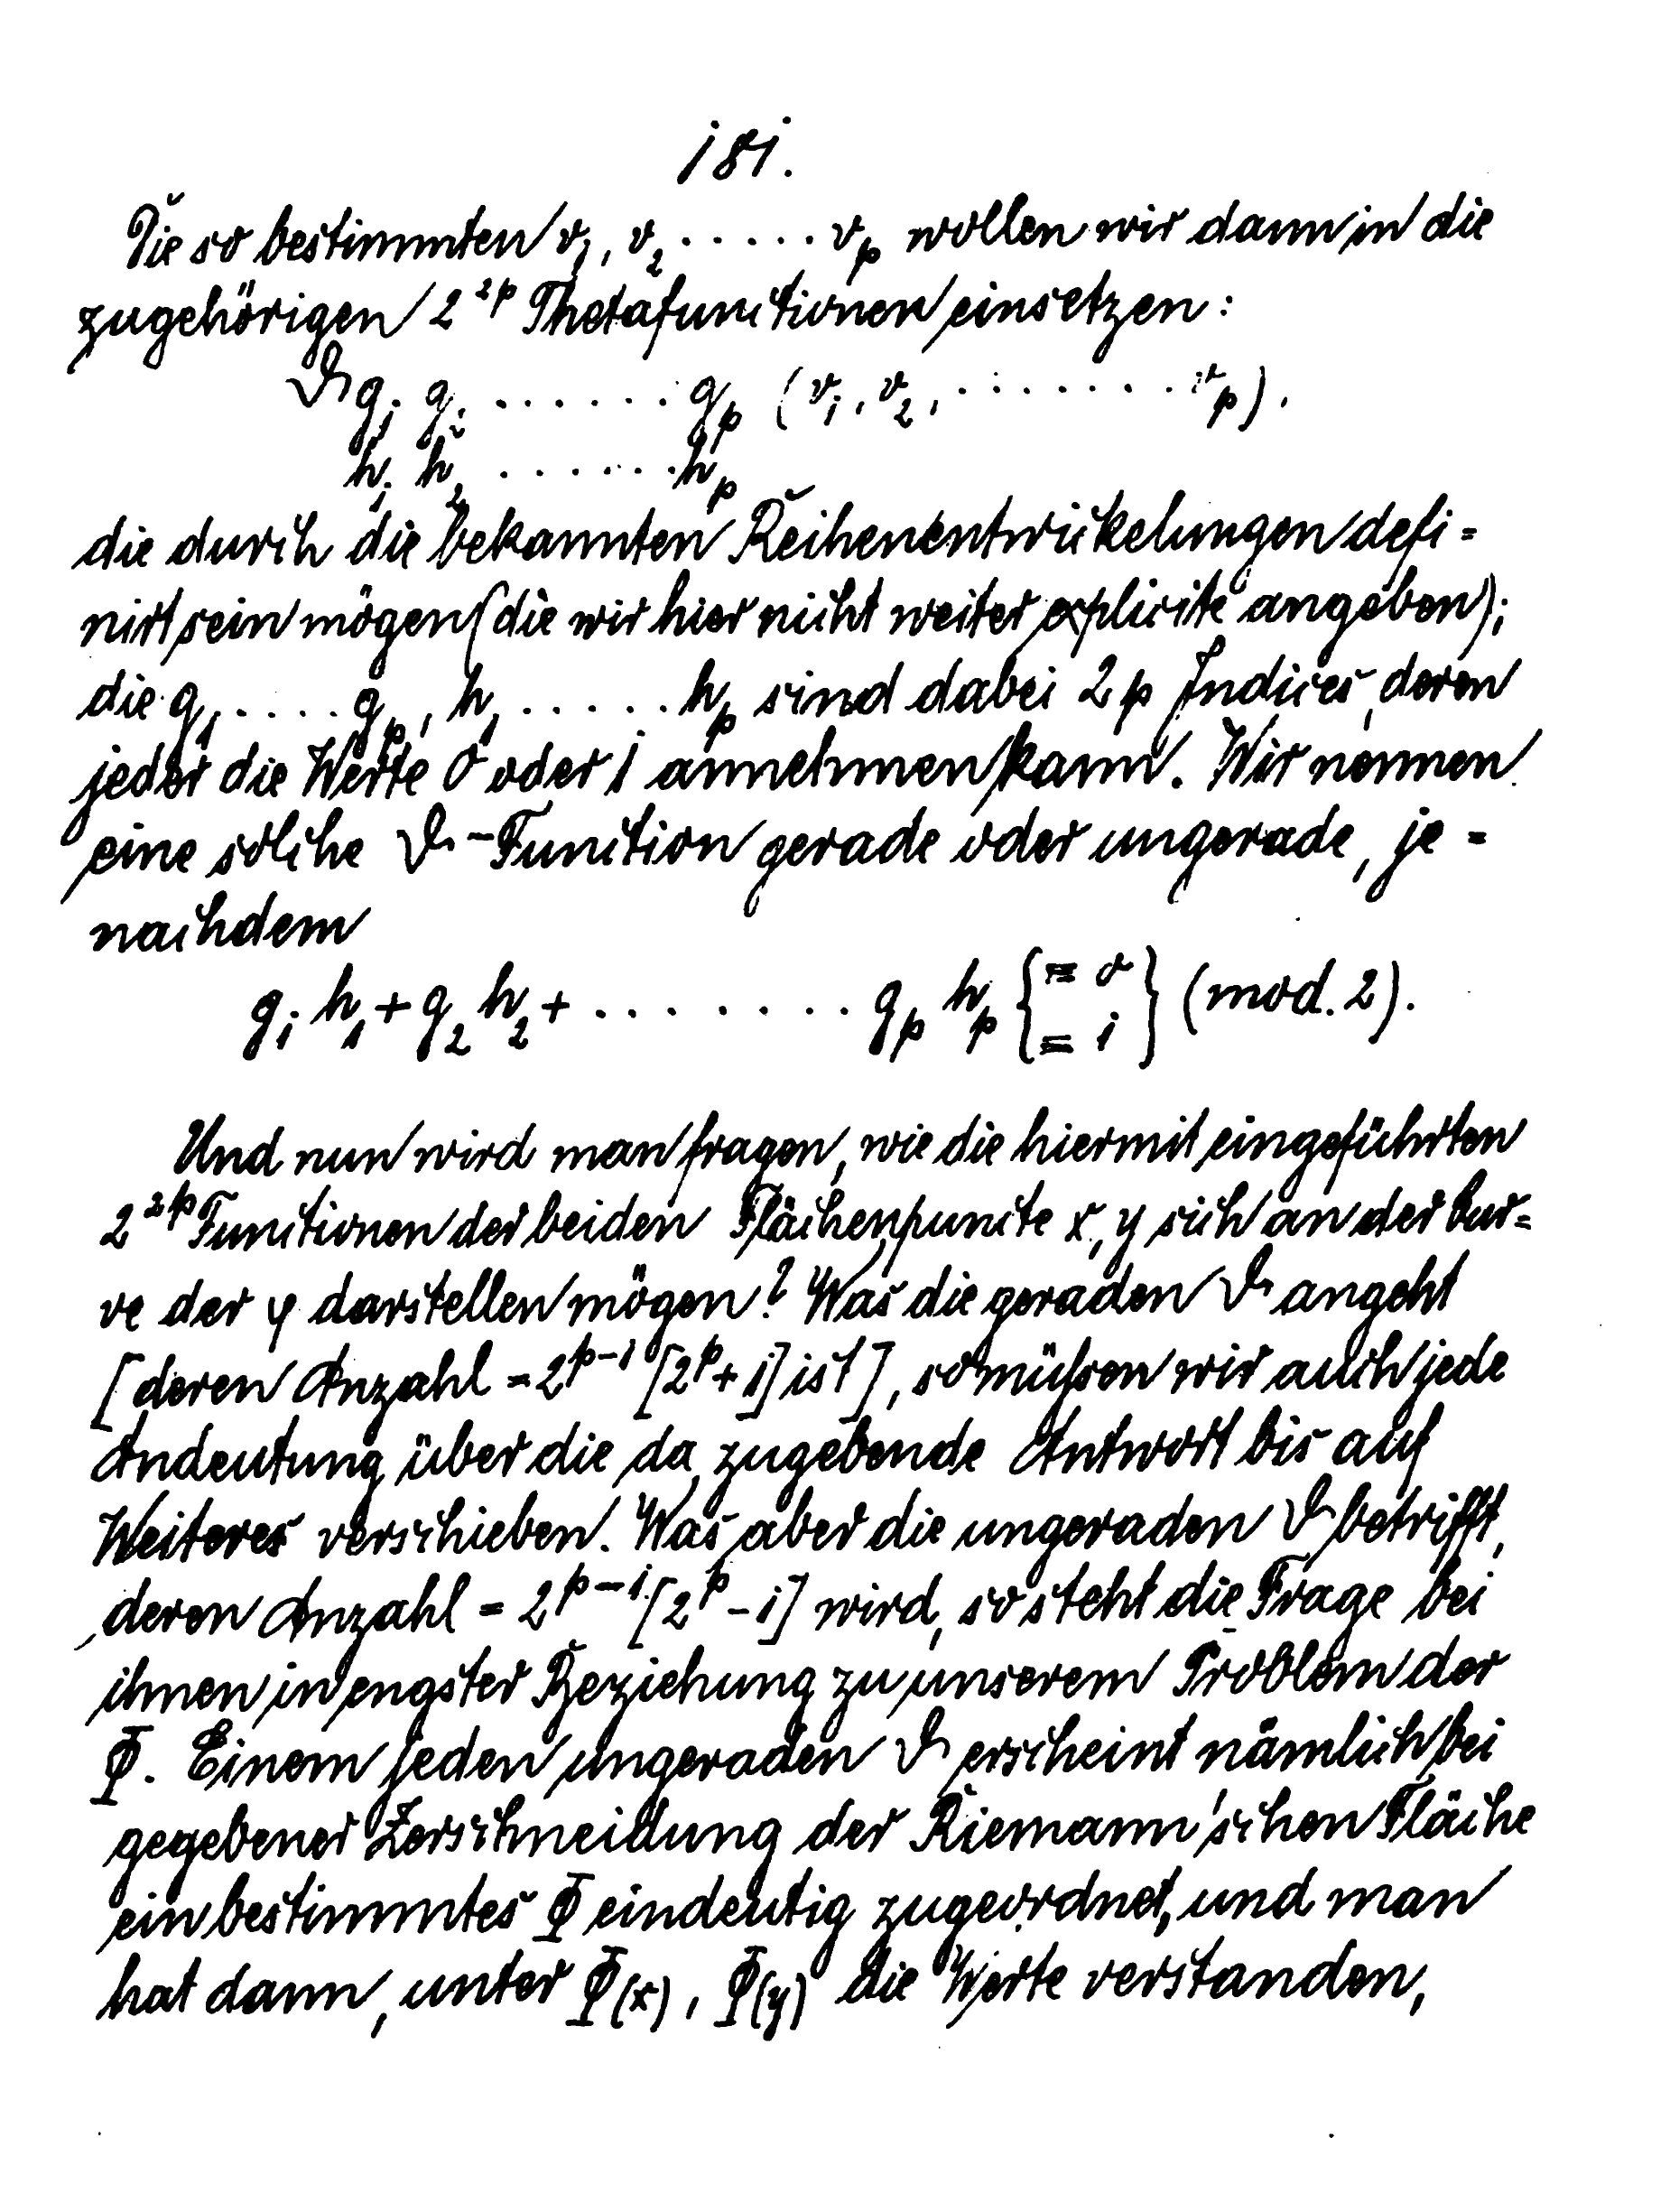 181.
Die so bestimmten v₁, v₂ ..... vₚ wollen wir dann in die
zugehörigen 2²ᵖ Thetafunctionen einsetzen:
ϑ g₁ g₂ ...... gₚ (v₁, v₂, ........ vₚ).
h₁ h₂ ...... hₚ
die durch die bekannten Reihenentwickelungen defi=
nirt sein mögen (die wir hier nicht weiter explicite angeben);
die g₁ .... gₚ, h₁ ..... hₚ sind dabei 2p Indices, deren
jeder die Werte 0 oder 1 annehmen kann. Wir nennen
eine solche ϑ-Function gerade oder ungerade, je=
nachdem
g₁ h₁ + g₂ h₂ + ........ gₚ hₚ {≡ 0 / ≡ 1} (mod. 2).
Und nun wird man fragen, wie die hiermit eingeführten
2²ᵖ Functionen der beiden Flächenpuncte x, y sich an der Cur=
ve der φ darstellen mögen? Was die geraden ϑ angeht
[deren Anzahl = 2ᵖ⁻¹ [2ᵖ + 1] ist], so müssen wir auch jede
Andeutung über die da zugebende Antwort bis auf
Weiteres verschieben. Was aber die ungeraden ϑ betrifft,
deren Anzahl = 2ᵖ⁻¹ [2ᵖ - 1] wird, so steht die Frage bei
ihnen in engster Beziehung zu unserem Problem der
Φ. Einem jeden ungeraden ϑ erscheint nämlich bei
gegebener Zerschneidung der Riemann'schen Fläche
ein bestimmtes Φ eindeutig zugeordnet, und man
hat dann, unter Φ(x), Φ(y) die Werte verstanden,